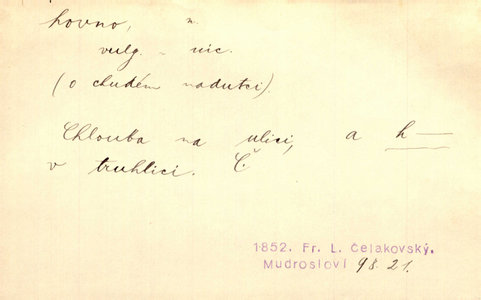 hovno, n.
vulg. - nic.
(o chudém nadutci).
Chlouba na ulici, a h—
v truhlici. Č.
1852. Fr. L. Čelakovský,
Mudrosloví 98.21.